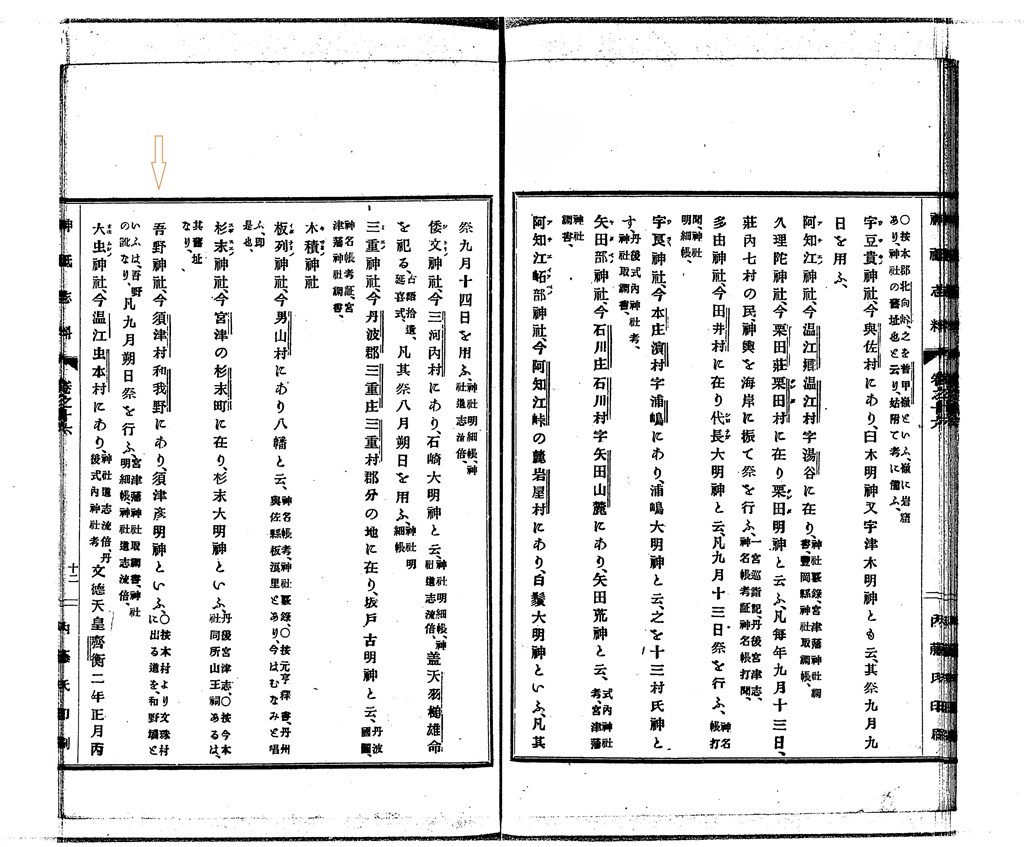 〇按本郡北向峠、之を首甲嶽といふ、嶽に岩窟
あり、神社の舊址也と云り、姑附て考に備ふ、
宇豆貴神社、今與佐村にあり、臼木明神又宇津木明神とも云、其祭九月九
日を用ふ、
阿知江神社、今温江郷温江村字湯谷に在り、神社覈錄、宮津藩神社調書、豐岡縣神社取調帳、
久理陀神社、今栗田莊栗田村に在り栗田明神と云ふ、凡毎年九月十三日、
莊内七村の民、神輿を海岸に振て祭を行ふ、一宮巡詣記丹後宮津志、神名帳考証神名帳打聞、
多由神社、今田井村に在り代長大明神と云、凡九月十三日祭を行ふ、神名帳打
聞、神社明細帳、
宇良神社、今本庄濱村字浦嶋にあり、浦嶋大明神と云、之を十三村氏神と
す、丹後式内神社考、神社取調書、
矢田部神社、今石川庄石川村字矢田山麓にあり、矢田荒神と云、式内神社考、宮津藩
神社調書、
阿知江峪部神社、今阿知江峠の麓岩屋村にあり、白鬚大明神といふ、凡其
祭九月十四日を用ふ、神社明細帳、神社道志流倍、
倭文神社、今三河内村にあり、石崎大明神と云、神社明細帳、神社道志流倍、蓋天羽槌雄命
を祀る、古語拾遺、延喜式、凡其祭八月朔日を用ふ、神社明細帳
三重神社、今丹波郡三重庄三重村郡分の地に在り、坂戸古明神と云、丹波國圖、
神名帳考証、宮津藩神社調書、
木積神社
板列神社、今男山村にあり八幡と云、神名帳考、神社覈錄、〇按元亨釋書、丹州與佐縣板浪里とあり、今はむなみと唱
ふ、即是也、
杉末神社、今宮津の杉末町に在り、杉末大明神といふ、丹後宮津志、〇按今本社同所山王祠あるは、
其舊址なり、
吾野神社、今須津村和我野にあり、須津彦明神といふ、〇按本村より文珠村に出る道を、和野墳と
いふは、吾野の訛なり、凡九月朔日祭を行ふ、宮津藩神社取調書、神社明細帳、神社道志流倍、
大虫神社、今温江虫本村にあり、神社道志流倍、丹後式内神社考文德天皇齊衡二年正月丙
神祇志料
卷之十六
十二
内藤氏印刷